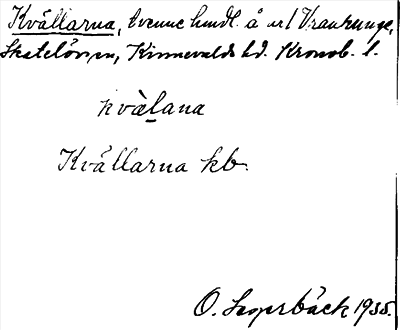 Kvällarna, tvenne hmdl. å nr 1 Vrankunge,
Skatelövs sn, Kinnevalds hd. Kronob. l.
kvàlana
Kvällarna kb.
O. Sagerbäck 1935.